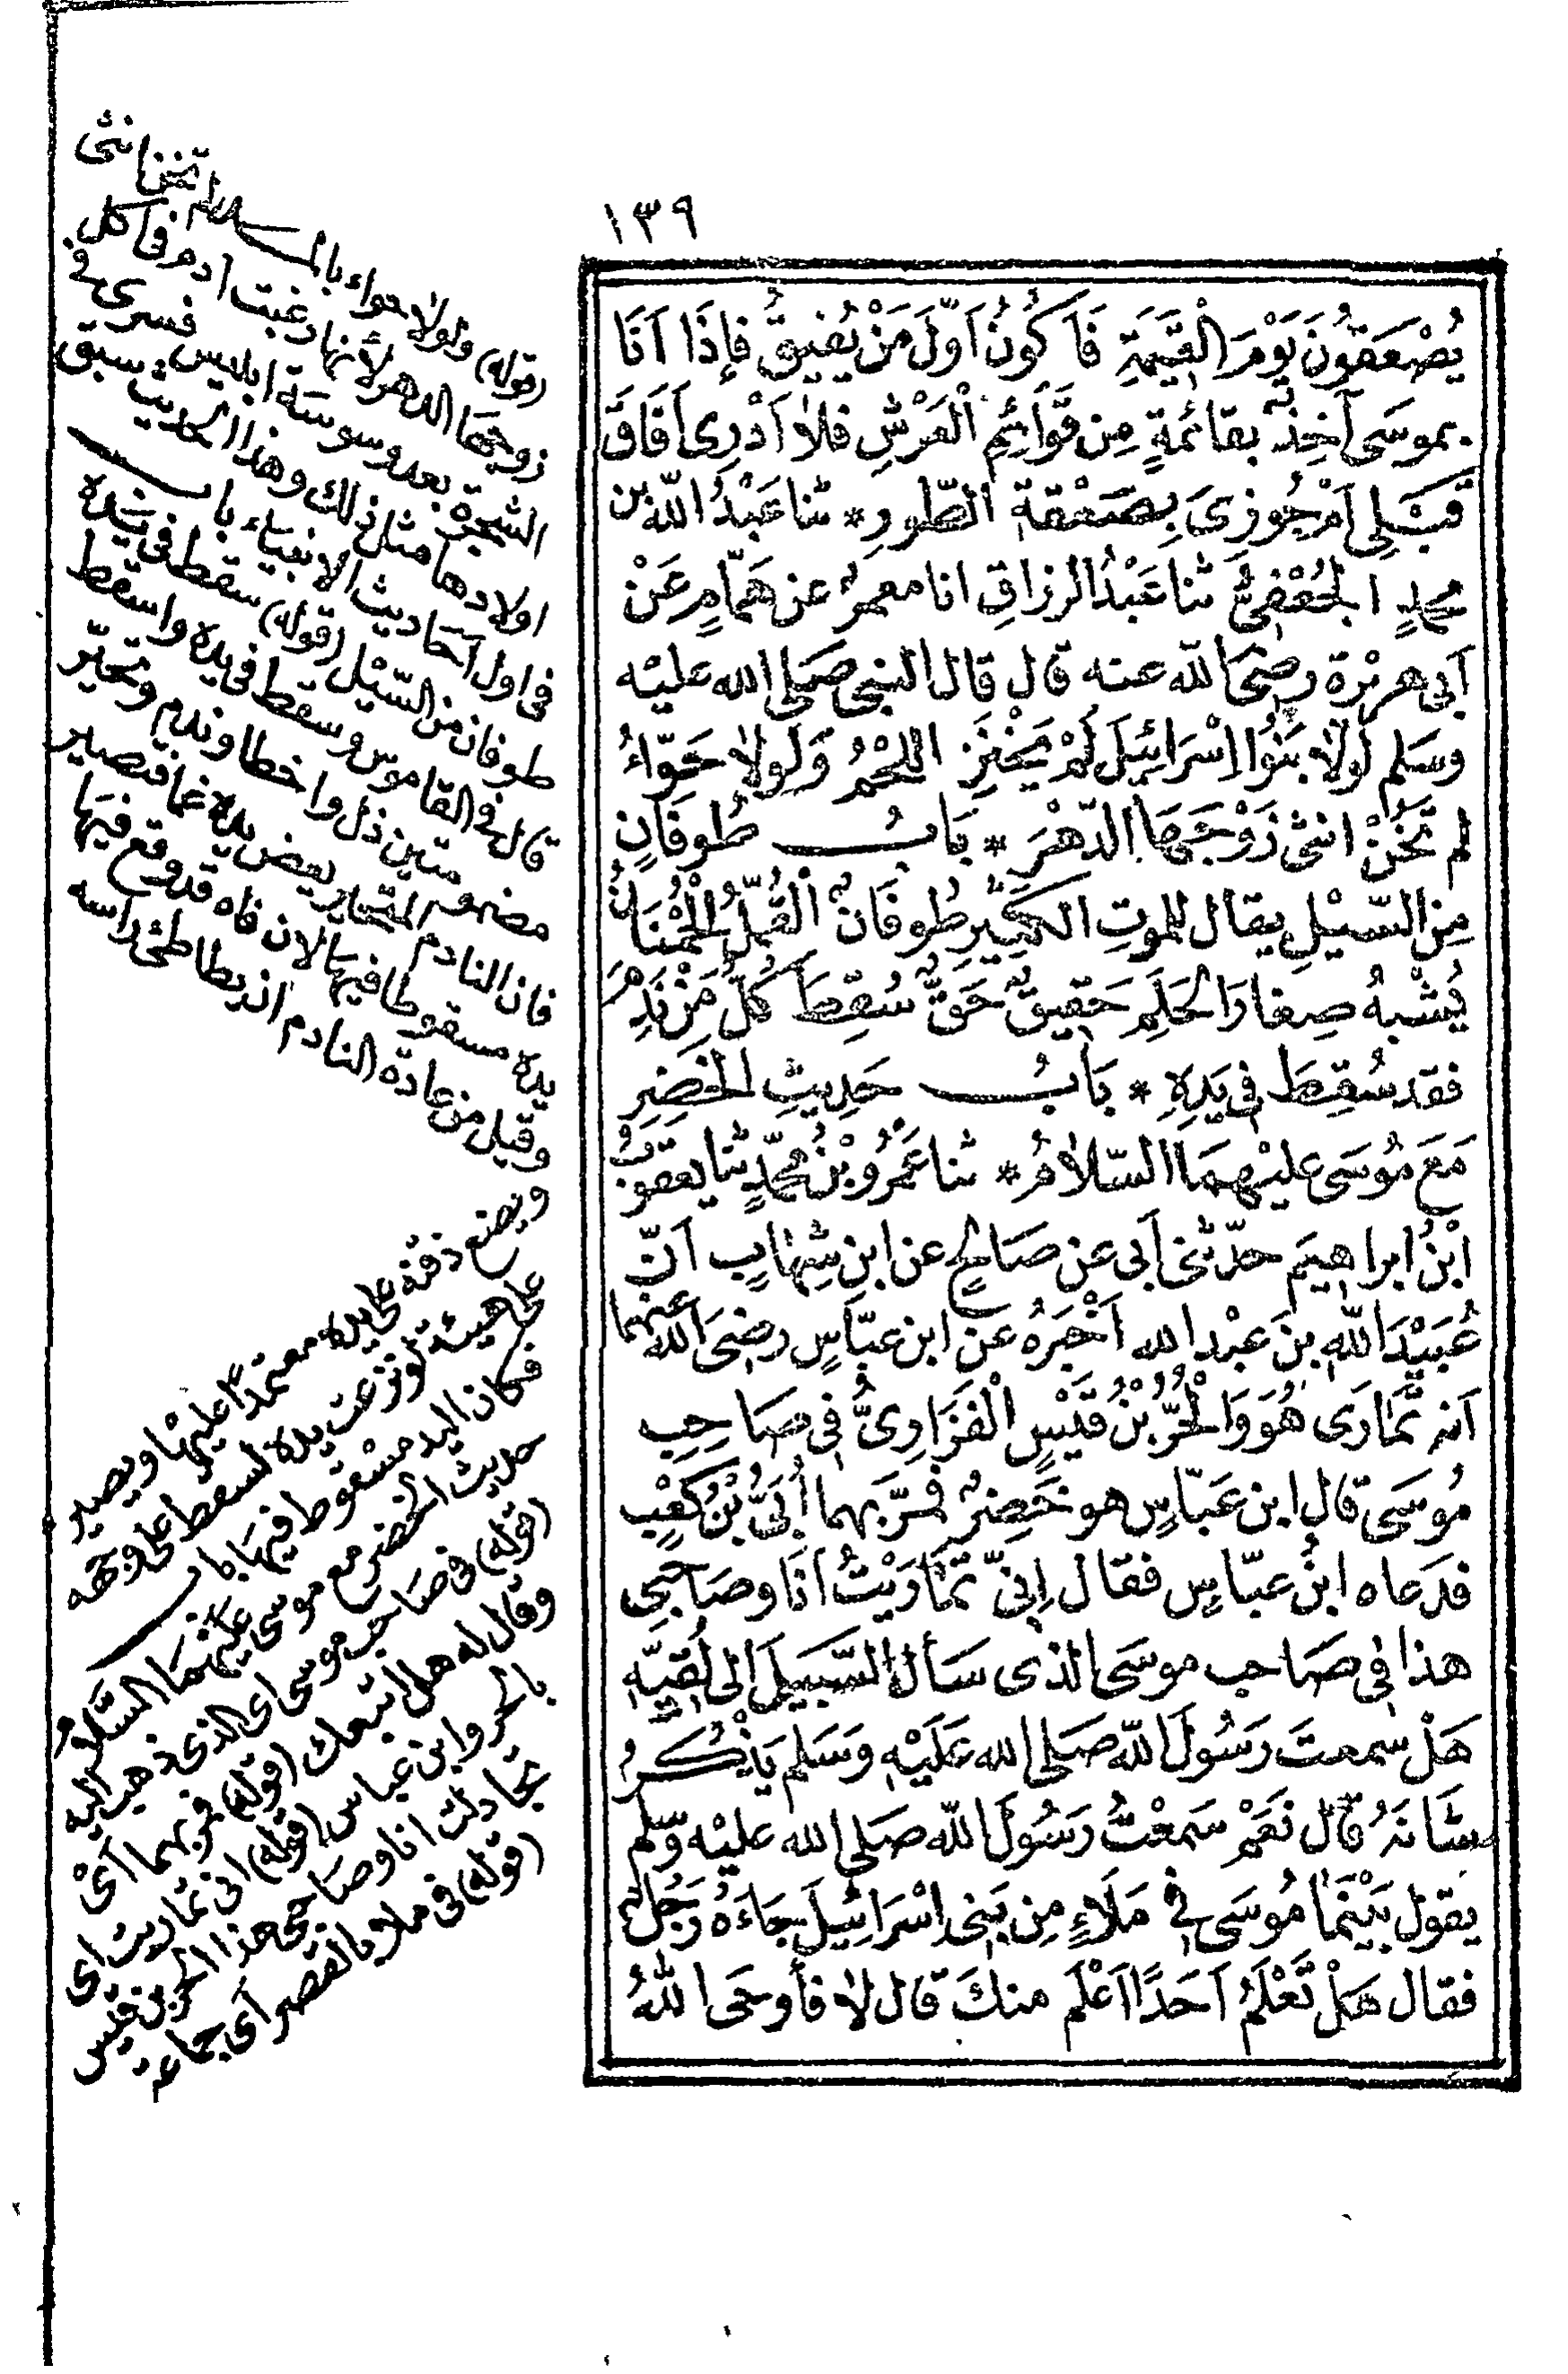 ١٣٩
يُصْعَقُونَ يَوْمَ الْقِيٰمَةِ فَاَكُونُ اَوَّلَ مَنْ يُفِيقُ فَاِذَا اَنَا
بموسَى آخِذٌ بقائمةٍ مِن قَوَائِمِ الْعَرْشِ فلا اَدْرِى اَفَاقَ
قَبْلِى اَمْ جُوزِىَ بِصَعْقةِ الطّورِ * ثنا عَبْدُ اللّه بن
محمدٍ الجُعْفِىُّ ثنا عَبْدُ الرزاقِ انا معمرٌ عن هَمّامٍ عَنْ
اَبى هريْرة رضِىَ اللّه عنه قال قال النبى صَلى الله عليْه
وسَلم لَولَا بَنُوا اِسْرَائِيلَ لَمْ يَخْنَزِ اللحْمُ وَلَولا حَوّاءُ
لم تَخُنْ انثى زَوْجَهَا الدّهْرَ * بَابُ طُوفَانٍ
مِن السّيْلِ يقال للموتِ الكَثِيرِ طُوفَانٌ الْقُمّلُ الْحُمْنَانُ
يُشْبهُ صِغارَ الحَلَمِ حَقِيقٌ حَقٌّ سُقِطَ كُلُّ مَنْ نَدِمَ
فقد سُقِطَ فِى يَدِهِ * بَابُ حَدِيثِ الخَضِرِ
مَعَ مُوسَى عليْهِمَا السّلَامُ * ثنا عَمْرُو بْنُ مُحمّدٍ ثنا يعقوبُ
ابْنُ ابراهِيمَ حدّثنى اَبى عن صَالحٍ عن ابنِ شِهَابٍ اَنّ
عُبَيْدَ اللّهِ بنَ عبْد الله اَخْبَرَهُ عن ابن عبّاسٍ رضِىَ الله عنهما
اَنه تَمَارَى هُوَ وَالْحُرُّ بْنُ قَيْسٍ الْفَزَارِىُّ فِى صَاحِبِ
مُوسَى قال ابن عَبّاسٍ هو خَضِرٌ فمَرَّ بهما اُبَىُّ بْنُ كَعْبٍ
فدَعاه ابنُ عبّاسٍ فقال اِنِّى تمَارَيْتُ اَنَا وصَاحِبِى
هذا فِى صَاحب موسَى الذى سَأل السَّبِيلَ اِلى لُقِيِّهِ
هَلْ سمعتَ رَسُولَ اللّه صَلى الله عَلَيْهِ وَسَلم يَذْكُرُ
شَانَهُ قال نَعَمْ سَمعْتُ رَسُولَ اللّه صَلى الله عليْه وسّلم
يقول بَيْنَمَا مُوسَى فِى مَلَاءٍ مِن بَنِى اِسْرَائِيلَ جَاءَهُ رَجُلٌ
فقال هَلْ تَعْلَمُ اَحَدًا اَعْلَم منكَ قال لا فأوحَى اللّهُ
(قوله) ولولا حواء بالمد لم تخن انثى
زوجها الدهر لأنها رغبت آدم فى اكل
الشجرة بعد وسوسة ابليس فسرى فى
اولادها مثل ذلك وهذا الحديث سبق
فى اول احاديث الانبياء باب
طوفان من السّيْل (قوله) سقط فى يده
قال فى القاموس وسقط فى يده واسقط
مضمومتين ذل واخطا وندم وتحيّر
فان النادم المتحير يعض يده غما فتصير
يده مسقوطا فيها لان فاه قد وقع فيها
وقيل من عادة النادم ان يطاطئ راسه
ويضع ذقنه على يده معتمدًا عليها ويصير
على هيئة لو نزعت يده لسقط على وجهه
فكان اليد مسقوط فيها باب
حديث الخضر مع موسى عليهما السَّلامُ
(قوله) فى صَاحب موسى اى الذى ذهب اليه
وقال له هل اتبعك (قوله) فمر بهما اَىْ
بالحر وابن عباس (قوله) انى تماريت اى
تجادلت انا وصَاحبى هذا الحر بن قيس
(قوله) فى ملا بالقصر اَى جماعة